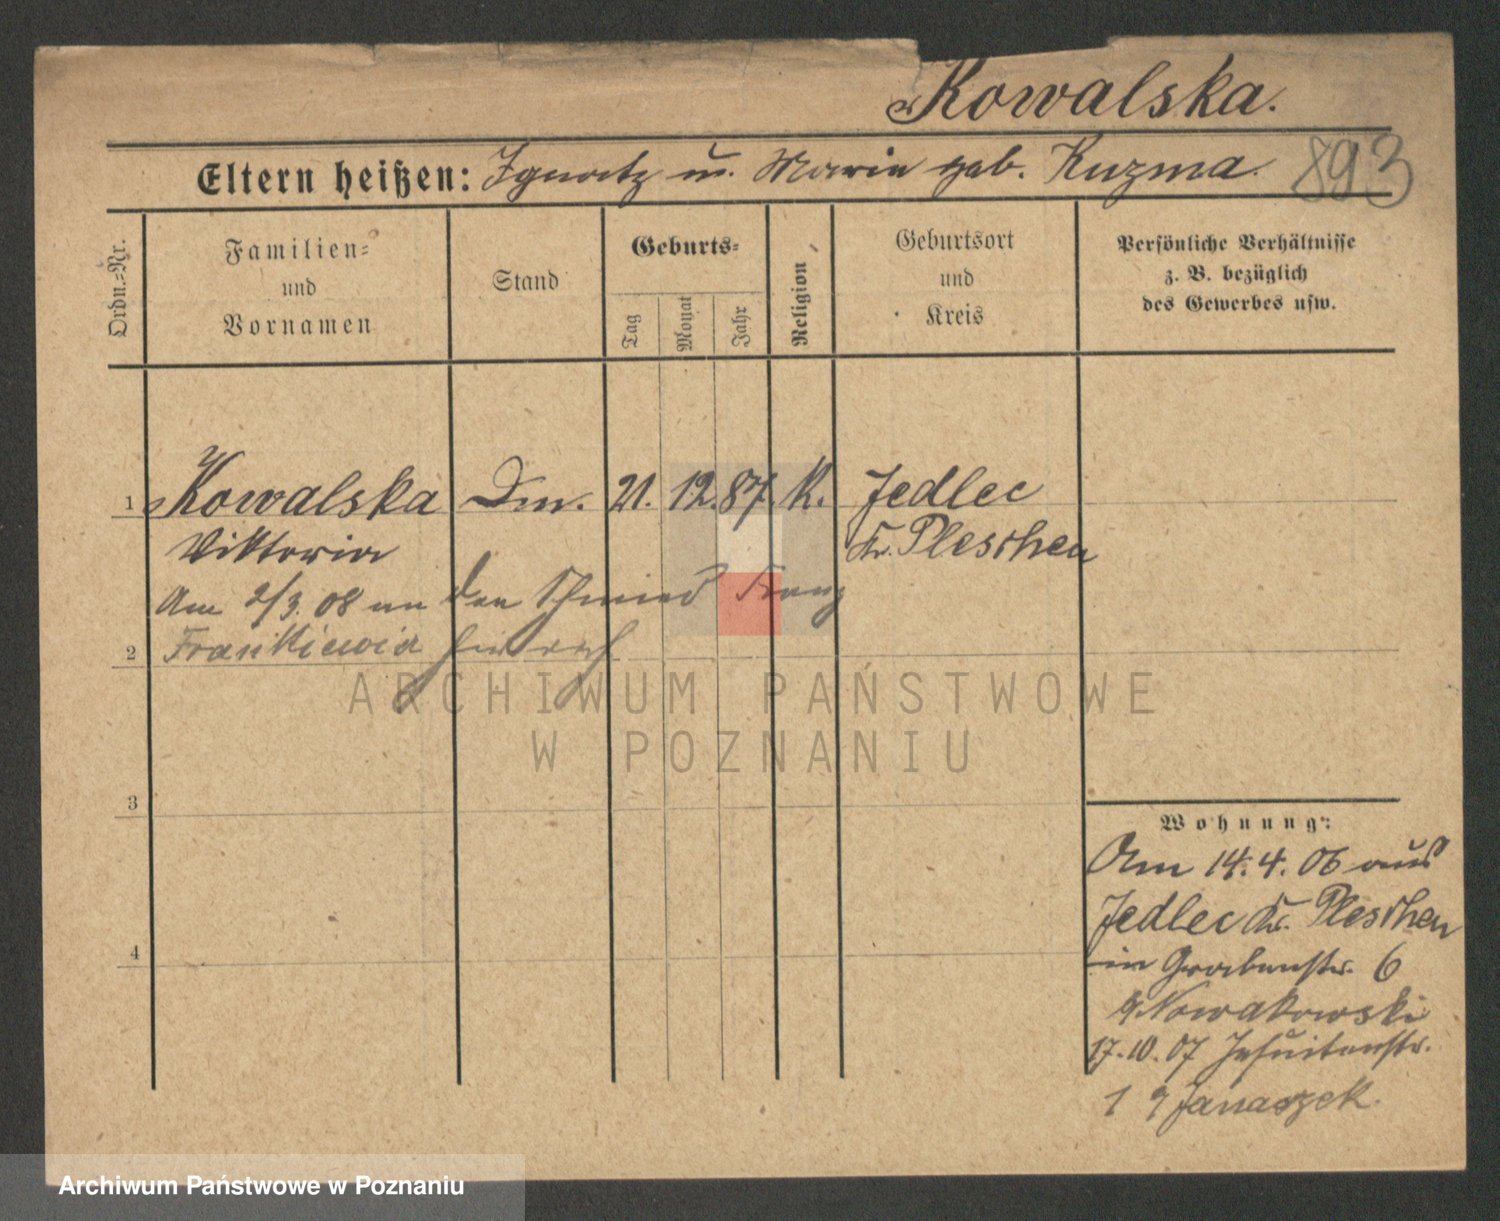 Kowalska.
Eltern heißen: Ignatz u. Maria geb. Kuzma. 893
Ordn.=Nr.
Familien=
und
Vornamen
Stand
Geburts=
Tag
Monat
Jahr
Religion
Geburtsort
und
Kreis
Persönliche Verhältnisse
z. B. bezüglich
des Gewerbes usw.
1 Kowalska Dm. 21. 12. 87. K. Jedlec
Viktoria Kr. Pleschen
Am 2/3. 08 an den Schmied Franz
2 Frankiewicz
ARCHIWUM PAŃSTWOWE
W POZNANIU
3
Wohnung:
Am 14.4.06 aus
Jedlec Kr. Pleschen
4
in Grabenstr. 6
Nowakowski
17.10.07 Jesuitenstr.
1 Janaszek.
Archiwum Państwowe w Poznaniu